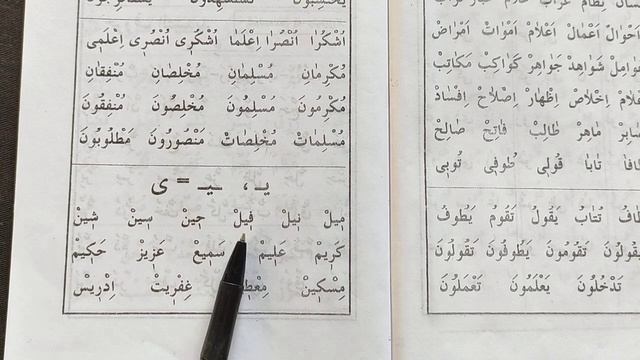 اَحْوَالْ اَعْمَالْ اَعْلَامْ اَمْوَاتْ اَمْرَاضْ
شَوَاهِدْ جَوَاهِرْ كَوَاكِبْ مَكَاتِبْ
اِخْلَاصْ اِظْهَارْ اِصْلَاحْ اِفْسَادْ
مَاهِرْ طَالِبْ فَاتِحْ صَالِحْ
تَابَا قُولِى طُوفِى تُوبِى
تُتَابُ يَقُولُ تَقُومُ يَطُوفُ
تَقُومُونَ يَطُوفُونَ تَقُولُونَ
تَدْخُلُونَ يَعْلَمُونَ تَعْمَلُونَ
اُشْكُرَا اُنْصُرَا اِعْلَمَا اُشْكُرِى اُنْصُرِى اِعْلَمِى
مُكْرِمَانِ مُسْلِمَانِ مُخْلِصَانِ مُنْفِقَانِ
مُكْرِمُونَ مُسْلِمُونَ مُخْلِصُونَ مُنْفِقُونَ
مُسْلِمَاتْ مُخْلِصَاتْ مَنْصُورُونَ مَطْلُوبُونَ
يـ ، ـيـ = ى
مِيلْ نِيلْ فِيلْ حِينْ سِينْ شِينْ
كَرِيمْ عَلِيمْ سَمِيعْ عَزِيزْ حَكِيمْ
مِسْكِينْ عِفْرِيتْ اِدْرِيسْ